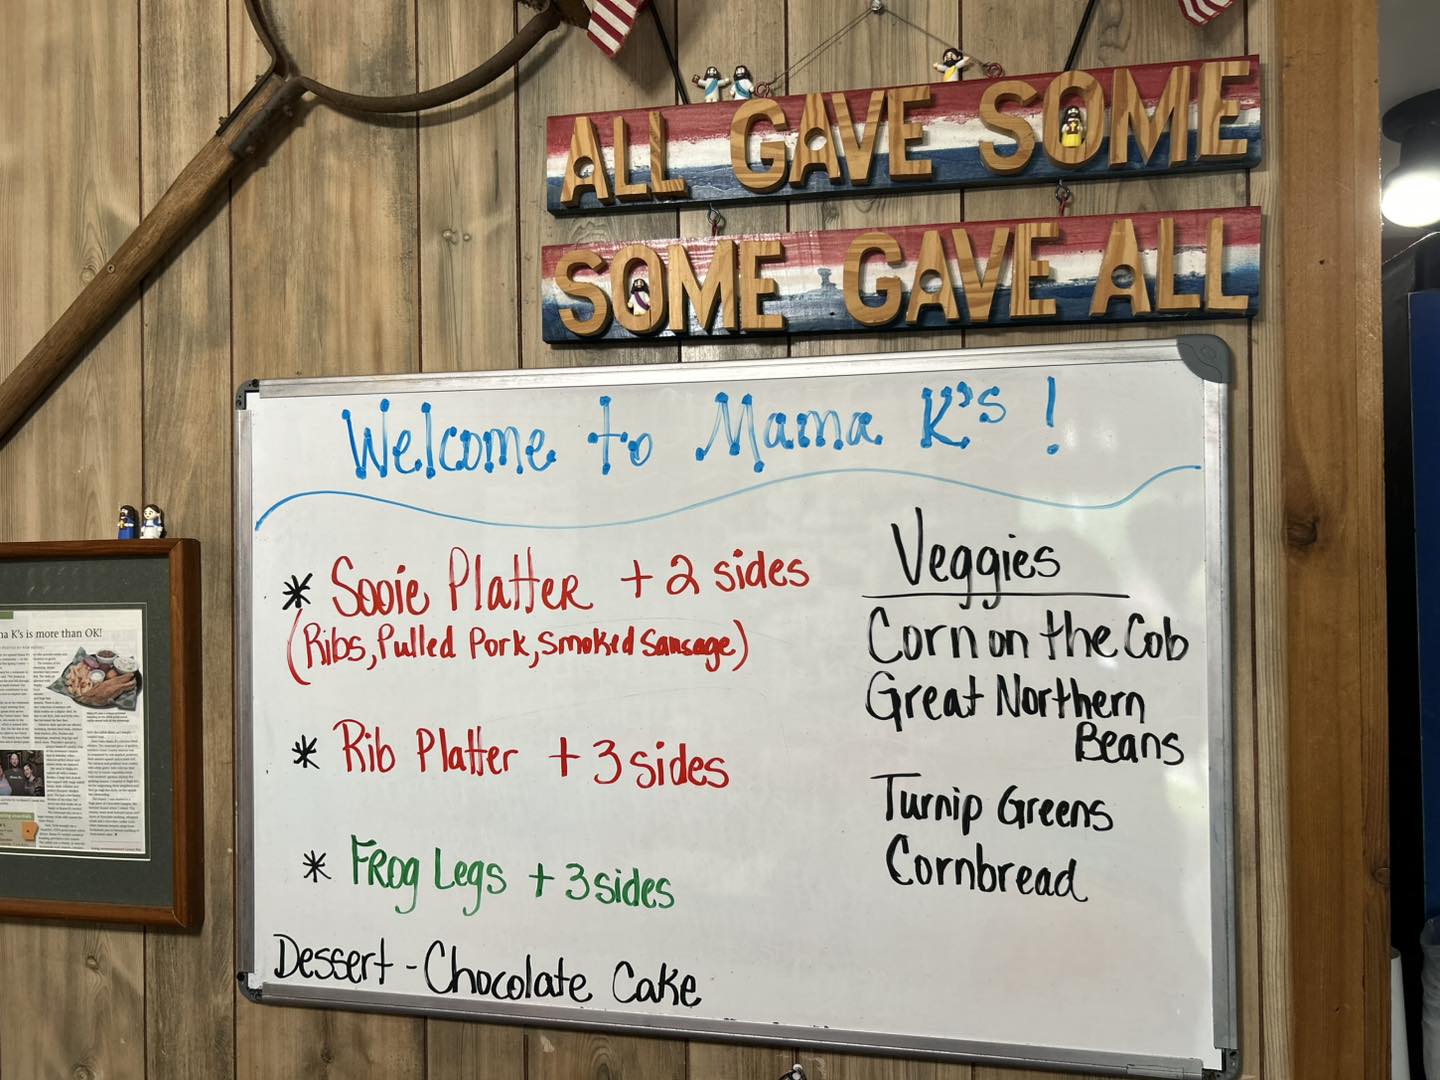 ALL GAVE SOME
SOME GAVE ALL
Welcome to Mama K's!
* Sooie Platter + 2 sides
(Ribs, Pulled Pork, Smoked Sausage)
* Rib Platter + 3 sides
* Frog Legs + 3 sides
Dessert - Chocolate Cake
Veggies
Corn on the Cob
Great Northern
Beans
Turnip Greens
Cornbread
K's is more than OK!